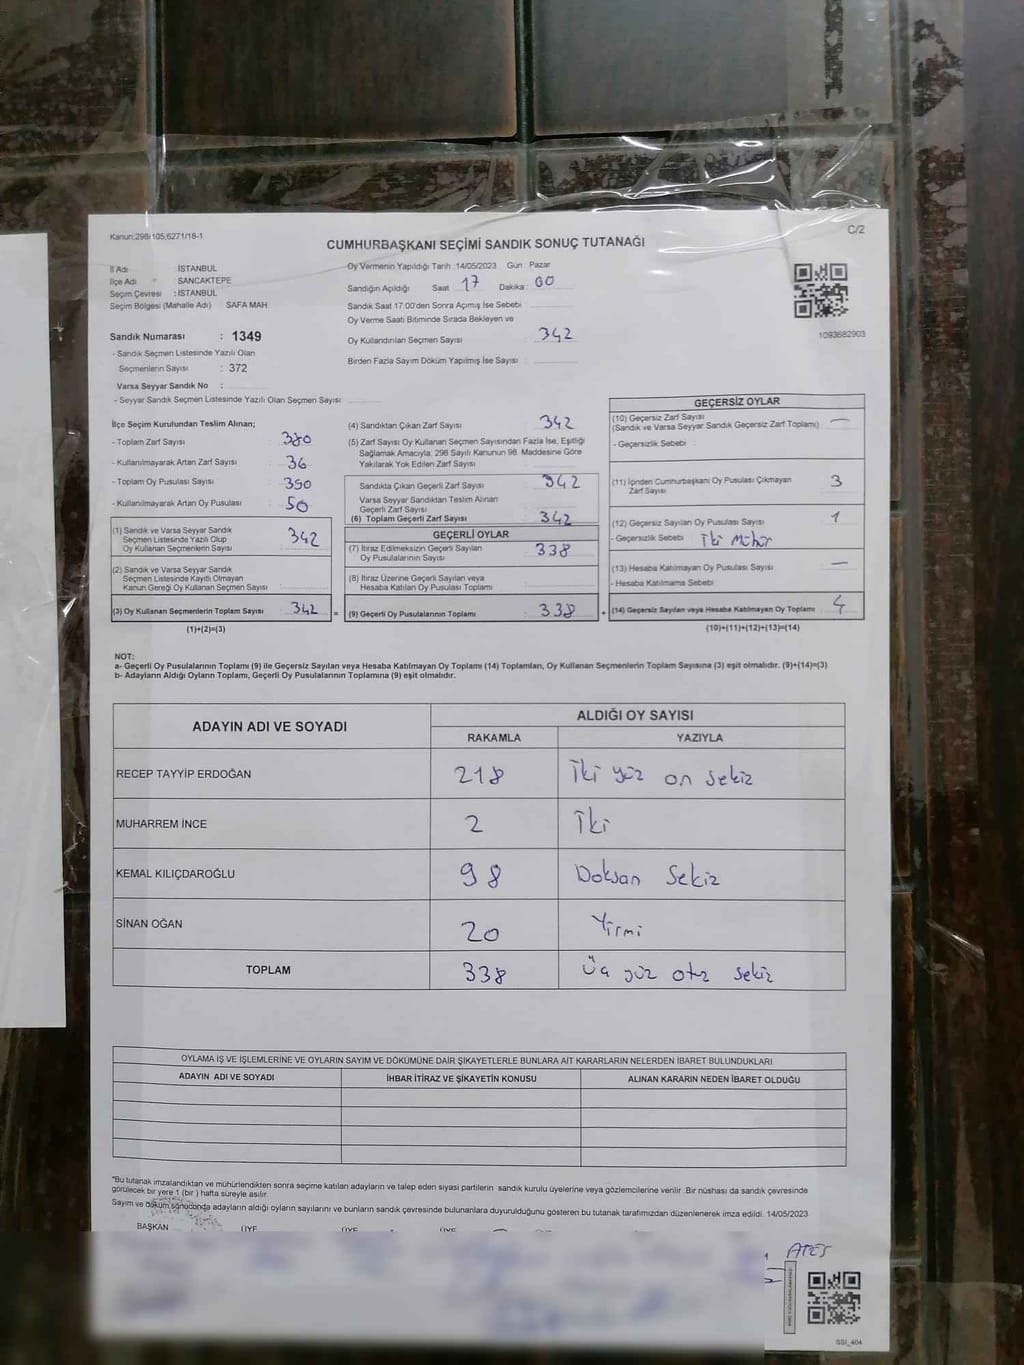 Kanun:298/105;6271/16-1
C/2
CUMHURBAŞKANI SEÇİMİ SANDIK SONUÇ TUTANAĞI
İl Adı : İSTANBUL
İlçe Adı : SANCAKTEPE
Seçim Çevresi : İSTANBUL
Seçim Bölgesi (Mahalle Adı) SAFA MAH.
Oy Vermenin Yapıldığı Tarih :14/05/2023 Gün : Pazar
Sandığın Açıldığı Saat : 17 Dakika : 00
Sandık Saat 17:00'den Sonra Açımış İse Sebebi :
Oy Verme Saati Bitiminde Sırada Bekleyen ve
Oy Kullandırılan Seçmen Sayısı : 342
Birden Fazla Sayım Döküm Yapılmış İse Sayısı :
1093682903
Sandık Numarası : 1349
- Sandık Seçmen Listesinde Yazılı Olan
Seçmenlerin Sayısı : 372
Varsa Seyyar Sandık No :
- Seyyar Sandık Seçmen Listesinde Yazılı Olan Seçmen Sayısı :
İlçe Seçim Kurulundan Teslim Alınan;
- Toplam Zarf Sayısı : 380
- Kullanılmayarak Artan Zarf Sayısı : 36
- Toplam Oy Pusulası Sayısı : 390
- Kullanılmayarak Artan Oy Pusulası : 50
(1) Sandık ve Varsa Seyyar Sandık
Seçmen Listesinde Yazılı Olup
Oy Kullanan Seçmenlerin Sayısı : 342
(2) Sandık ve Varsa Seyyar Sandık
Seçmen Listesinde Kayıtlı Olmayan
Kanun Gereği Oy Kullanan Seçmen Sayısı :
(3) Oy Kullanan Seçmenlerin Toplam Sayısı : 342 =
(1)+(2)=(3)
(4) Sandıktan Çıkan Zarf Sayısı : 342
(5) Zarf Sayısı Oy Kullanan Seçmen Sayısından Fazla İse, Eşitliği
Sağlamak Amacıyla; 298 Sayılı Kanunun 98. Maddesine Göre
Yakılarak Yok Edilen Zarf Sayısı :
Sandıkta Çıkan Geçerli Zarf Sayısı : 342
Varsa Seyyar Sandıktan Teslim Alınan
Geçerli Zarf Sayısı :
(6) Toplam Geçerli Zarf Sayısı : 342
GEÇERLİ OYLAR
(7) İtiraz Edilmeksizin Geçerli Sayılan
Oy Pusulalarının Sayısı : 338
(8) İtiraz Üzerine Geçerli Sayılan veya
Hesaba Katılan Oy Pusulası Toplamı :
(9) Geçerli Oy Pusulalarının Toplamı : 338 +
GEÇERSİZ OYLAR
(10) Geçersiz Zarf Sayısı
(Sandık ve Varsa Seyyar Sandık Geçersiz Zarf Toplamı) : —
- Geçersizlik Sebebi :
(11) İçinden Cumhurbaşkanı Oy Pusulası Çıkmayan
Zarf Sayısı : 3
(12) Geçersiz Sayılan Oy Pusulası Sayısı : 1
- Geçersizlik Sebebi : İki Mühür
(13) Hesaba Katılmayan Oy Pusulası Sayısı : —
- Hesaba Katılmama Sebebi :
(14) Geçersiz Sayılan veya Hesaba Katılmayan Oy Toplamı : 4
(10)+(11)+(12)+(13)=(14)
NOT:
a- Geçerli Oy Pusulalarının Toplamı (9) ile Geçersiz Sayılan veya Hesaba Katılmayan Oy Toplamı (14) Toplamları, Oy Kullanan Seçmenlerin Toplam Sayısına (3) eşit olmalıdır. (9)+(14)=(3)
b- Adayların Aldığı Oyların Toplamı, Geçerli Oy Pusulalarının Toplamına (9) eşit olmalıdır.
ADAYIN ADI VE SOYADI ALDIĞI OY SAYISI
RAKAMLA YAZIYLA
RECEP TAYYİP ERDOĞAN 218 İki yüz on sekiz
MUHARREM İNCE 2 İki
KEMAL KILIÇDAROĞLU 98 Doksan Sekiz
SİNAN OĞAN 20 Yirmi
TOPLAM 338 Üç yüz otuz sekiz
OYLAMA İŞ VE İŞLEMLERİNE VE OYLARIN SAYIM VE DÖKÜMÜNE DAİR ŞİKAYETLERLE BUNLARA AİT KARARLARIN NELERDEN İBARET BULUNDUKLARI
ADAYIN ADI VE SOYADI İHBAR İTİRAZ VE ŞİKAYETİN KONUSU ALINAN KARARIN NEDEN İBARET OLDUĞU
"Bu tutanak imzalandıktan ve mühürlendikten sonra seçime katılan adayların ve talep eden siyasi partilerin sandık kurulu üyelerine veya gözlemcilerine verilir .Bir nüshası da sandık çevresinde
görülecek bir yere 1 (bir ) hafta süreyle asılır.
Sayım ve döküm sonucunda adayların aldığı oyların sayılarını ve bunların sandık çevresinde bulunanlara duyurulduğunu gösteren bu tutanak tarafımızdan düzenlenerek imza edildi. 14/05/2023
BAŞKAN ÜYE ÜYE ÜYE
ATEŞ
SSI_404